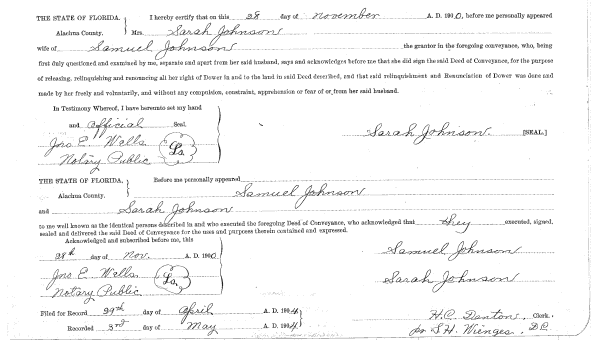 THE STATE OF FLORIDA. } I hereby certify that on this 28 day of November A. D. 1900, before me personally appeared
Alachua County. } Mrs. Sarah Johnson
wife of Samuel Johnson the grantor in the foregoing conveyance, who, being
first duly questioned and examined by me, separate and apart from her said husband, says and acknowledges before me that she did sign the said Deed of Conveyance, for the purpose
of releasing, relinquishing and renouncing all her right of Dower in and to the land in said Deed described, and that said relinquishment and Renunciation of Dower was done and
made by her freely and voluntarily, and without any compulsion, constraint, apprehension or fear of or from her said husband.
In Testimony Whereof, I have hereunto set my hand
and official Seal.
Jno E. Wells Ls. Sarah Johnson [SEAL.]
Notary Public
THE STATE OF FLORIDA. } Before me personally appeared Samuel Johnson
Alachua County. }
and Sarah Johnson
to me well known as the identical persons described in and who executed the foregoing Deed of Conveyance, who acknowledged that they executed, signed,
sealed and delivered the said Deed of Conveyance for the uses and purposes therein contained and expressed.
Acknowledged and subscribed before me, this
28th day of Nov. A. D. 1900 Samuel Johnson
Jno E. Wells Ls. Sarah Johnson
Notary Public
Filed for Record 29th day of April A. D. 1904 H.C. Dantons, Clerk.
Recorded 3rd day of May A. D. 1904 per S.H. Wienges, D.C.